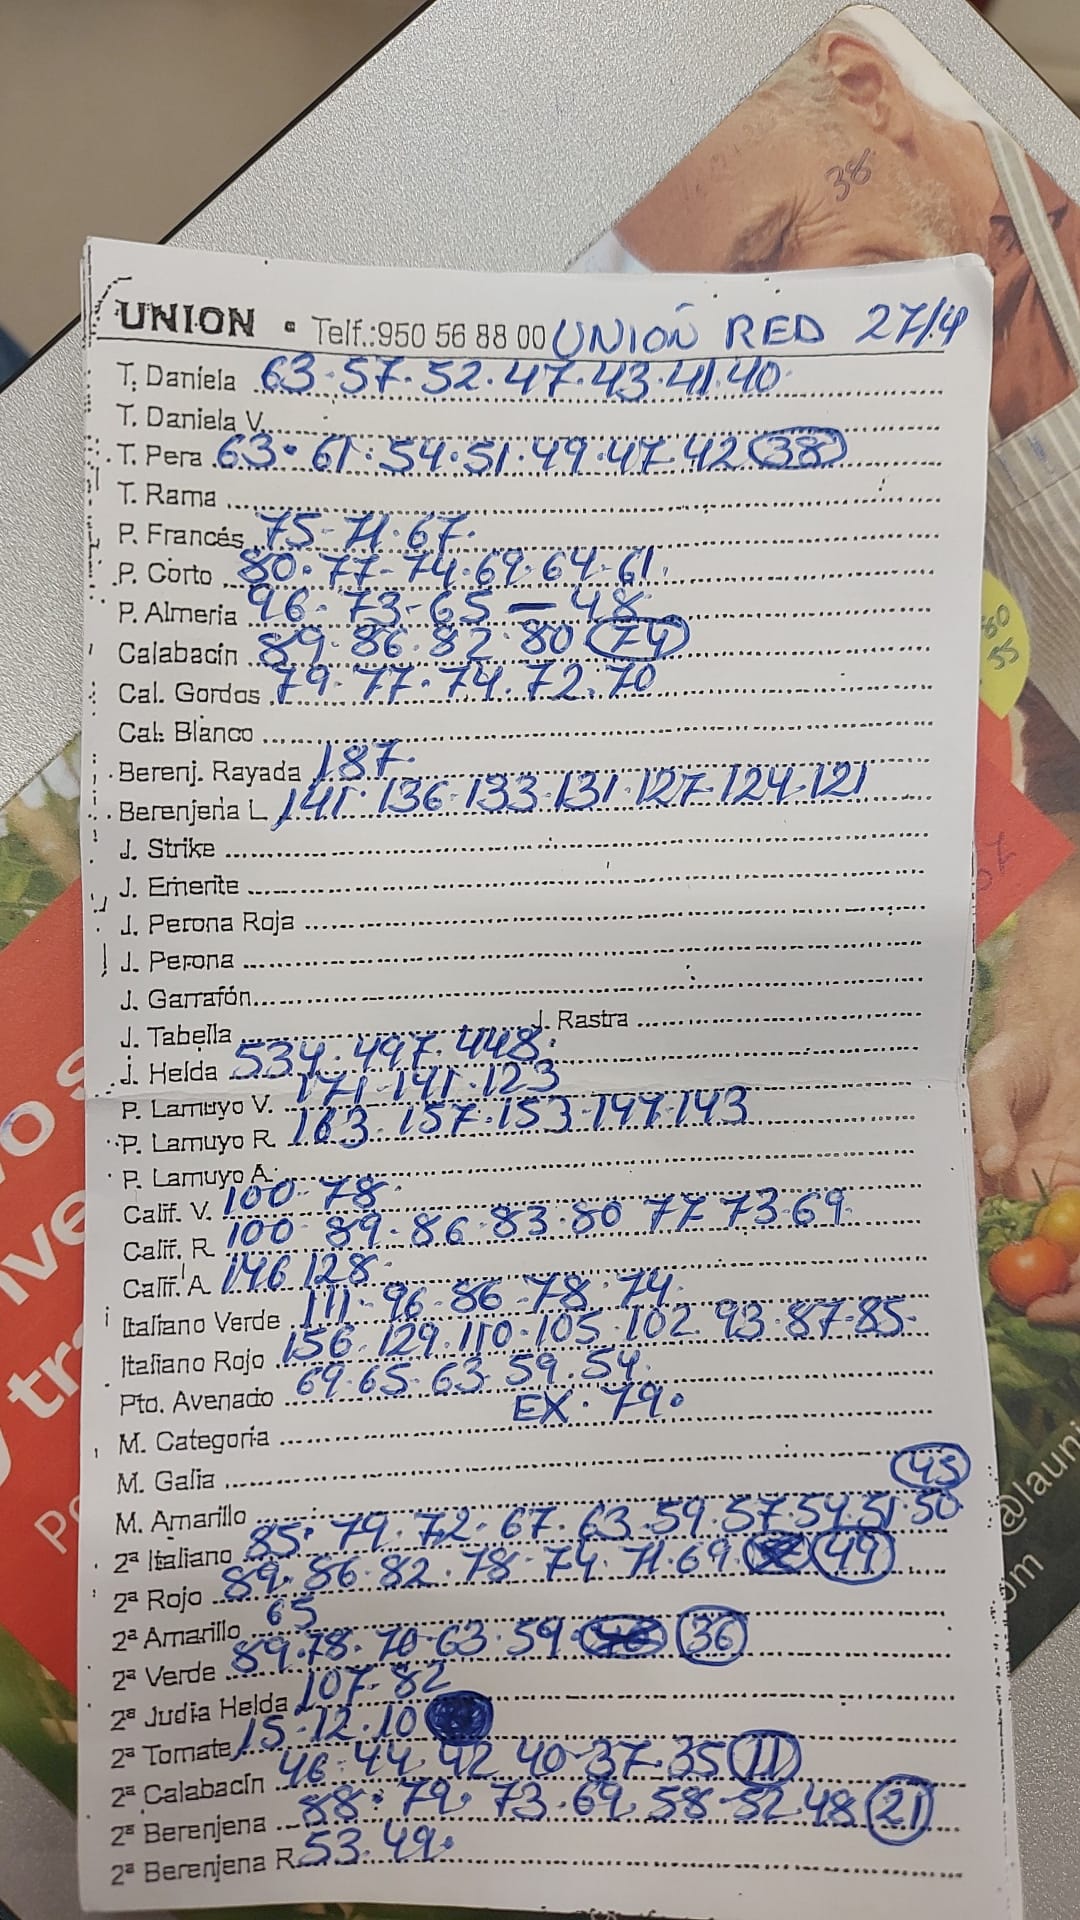 38
UNION • Telf.:950 56 88 00 UNION RED 27/4
T. Daniela 63·57·52·47·43·41·40
T. Daniela V.
T. Pera 63·61·54·51·49·47·42 (38)
T. Rama
P. Francés 75-71·67·
P. Corto 80·77-74·69·64·61
P. Almeria 96-73-65 — 48
Calabacín 89·86·82·80 (74)
Cal. Gordos 79·77·74·72·70
Cal. Blanco
Berenj. Rayada 187·
Berenjena L 141·136·133·131·127-124·121
J. Strike
J. Emerite
J. Perona Roja
J. Perona
J. Garrafón
J. Tabella J. Rastra
J. Helda 534·497·448·
P. Lamuyo V. 171-141·123
P. Lamuyo R. 163·157·153·147·143
P. Lamuyo A.
Calif. V. 100-78·
Calif. R. 100·89·86·83·80 77 73·69
Calif. A. 146 128·
Italiano Verde 111-96·86-78·74·
Italiano Rojo 156·129·110·105·102·93·87·85·
Pto. Avenado 69·65·63·59·54·
EX·79·
M. Categoria
M. Galia
(45)
M. Amarillo
2ª Italiano 85·79·72·67·63·59·57·54·51·50
2ª Rojo 89·86·82·78·74·71·69 (49)
2ª Amarillo 65
2ª Verde 89·78·70-63·59· (36)
2ª Judia Helda 107-82
2ª Tomate 15·12·10
2ª Calabacín 46·44·42 40-37·35 (11)
2ª Berenjena 88·79·73·69·58-52·48 (21)
2ª Berenjena R. 53·49·
60
55
@launi
om